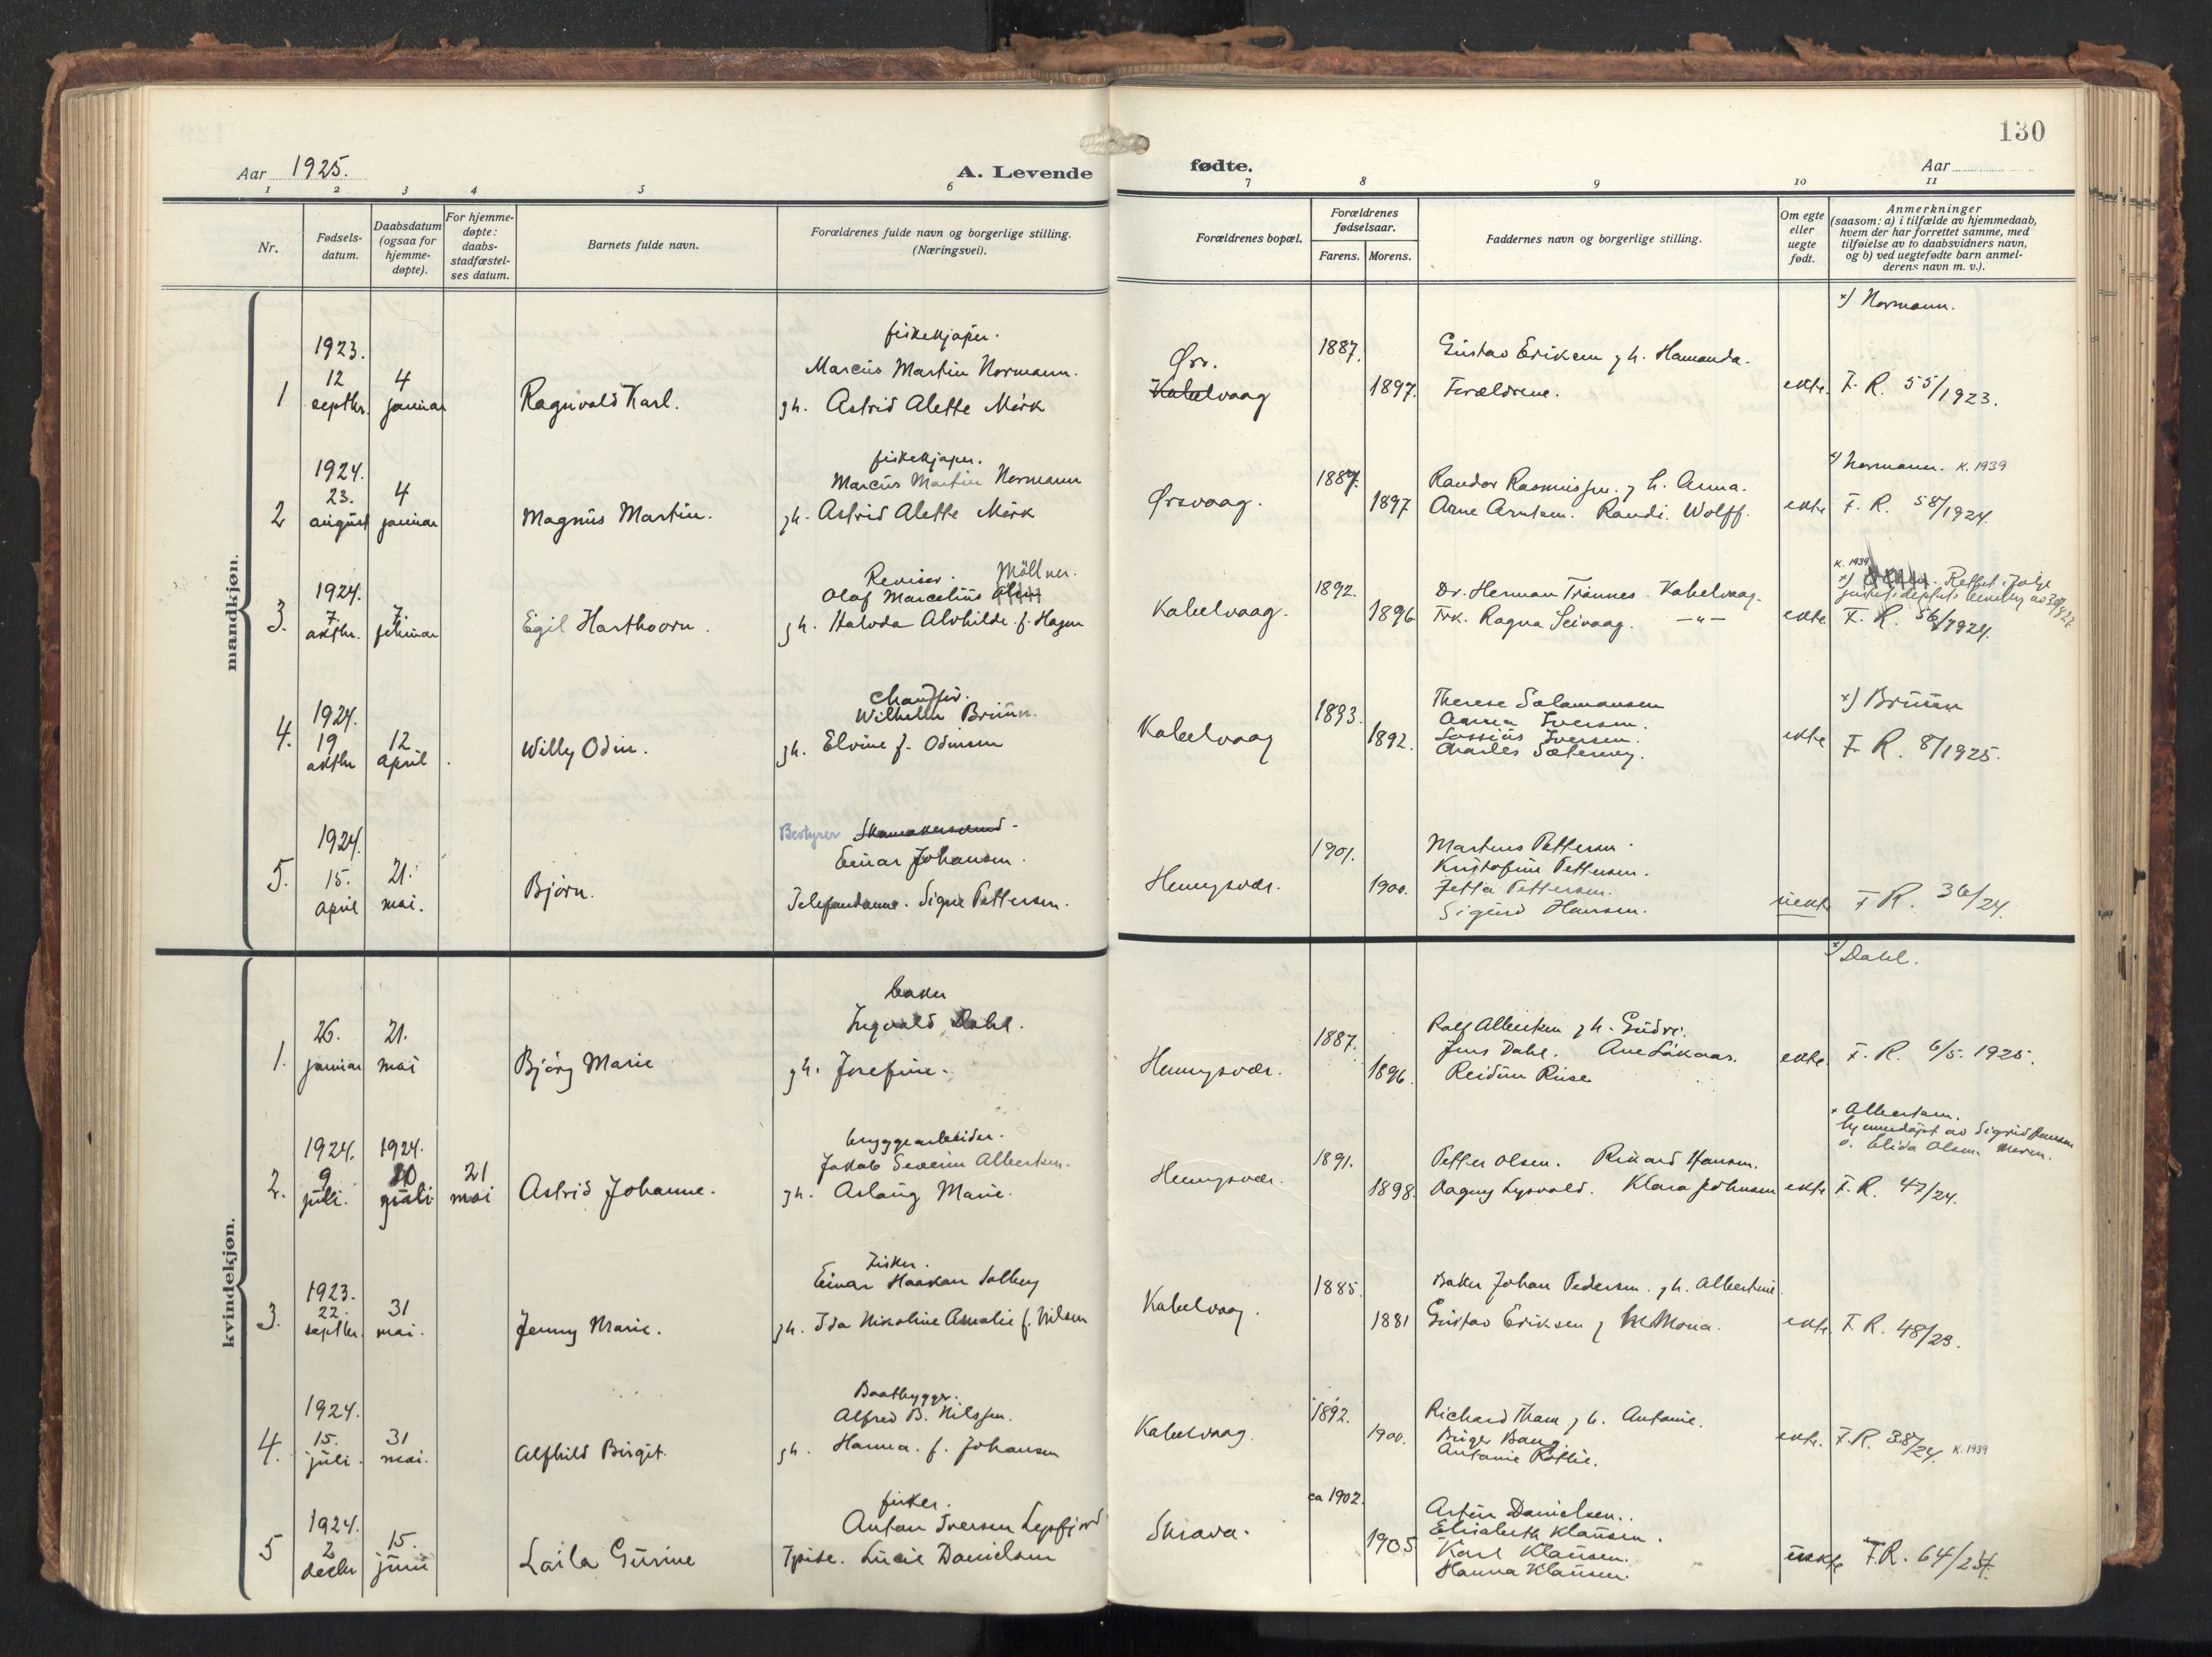 130
Aar 1925.
A. Levende
fødte.
Aar
1 2 3 4 5 6 7 8 9 10 11
Nr.
Fødsels-
datum.
Daabsdatum
(ogsaa for
hjemme-
døpte).
For hjemme-
døpte:
daabs-
stadfæstel-
ses datum.
Barnets fulde navn.
Forældrenes fulde navn og borgerlige stilling.
(Næringsvei).
Forældrenes bopæl.
Forældrenes
fødselsaar.
Farens. Morens.
Faddernes navn og borgerlige stilling.
Om egte
eller
uegte
født.
Anmerkninger
(saasom: a) i tilfælde av hjemmedaab,
hvem der har forrettet samme, med
tilføielse av to daabsvidners navn,
og b) ved uegtefødte barn anmel-
derens navn m. v.).
mandkjøn.
x) Normann.
1923.
fiskekjøper.
1
12
septbr.
4
januar
Ragnvald Karl.
Marcus Martin Normann.
gh. Astrid Alette Mørk
Ørs.
Kabelvaag
1887.
1897.
Gustav Eriksen g h. Hamanda.
Forældrene.
ekte.
F. R. 55/1923.
1924.
fiskekjøper.
2
23.
august
4
januar
Magnus Martin.
Marcus Martin Normann
gh. Astrid Alette Mørk
Ørsvaag.
1887.
1897
Randor Rasmussen. g h. Anna.
Arne Arntsen. Randi. Wolff.
ekte
x) Normann. K. 1939
F. R. 58/1924.
1924.
3.
7.
oktbr.
7.
februar
Egil Harthoorn.
Revisor. Möllner.
Olaf Marcelius
gh. Halvda Alvhilde. f. Hagen
Kabelvaag.
1892.
1896
Dr. Herman Trønnes. Kabelvaag.
Frk. Ragna Seivaag. —"—
ekte
K. 1939
x) Rettet ifølge
F. R. 56/1924.
1924.
4.
19
oktbr
12
april
Willy Odin.
Chauffør.
Wilhelm Bruun.
gh. Elvine f. Odinsen
Kabelvaag
1893.
1892.
Therese Salamonsen
Anna Iversen.
Iversen.
Charles Sæternes.
ekte
x) Bruun
F. R. 8/1925.
1924.
5.
15.
april
21.
mai.
Bjørn.
Bestyrer Skomakersvend.
Einar Johansen.
Telefondame. Signe Pettersen.
Henningsvær.
1901.
1900.
Martens Pettersen.
Kristofine Pettersen.
Jetta Pettersen.
Sigurd Hansen.
uekte
F R. 36/24.
kvindekjøn.
x) Dahl.
1.
26.
januar
21.
mai
Bjørg Marie
baker
Ingvald Dahl.
gh. Josefine.
Henningsvær.
1887.
1896.
Rolf Albertsen g h. Gudrs.
Jens Dahl. Ane Låkaas.
Reidun Riise
ekte.
F. R. 6/5. 1925.
1924. 1924.
2.
9
juli.
10
juli
21
mai
Astrid Johanne.
bryggearbeider.
Jakob Severin Albertsen.
gh. Aslaug Marie.
Henningsvær.
1891.
1898.
Petter Olsen. Rikard Hansen.
Dagny Lysvold. Klara Johnsen
ekte
x Albertsen.
hjemmedøpt av Sigrid Hansen
o. Elida Olsen.
F. R. 47/24.
1923.
3.
22.
septbr.
31
mai.
Jenny Marie.
Fisker.
Einar Haakon Solberg
gh. Ida Nikoline Amalie f. Nilsen
Kabelvaag.
1885.
1881
Baker Johan Pedersen. g h. Albertine.
Gustav Eriksen g Mona.
ekte.
F. R. 48/23.
1924.
4.
15.
juli.
31
mai.
Alfhild Birgit.
Baatbygger.
Alfred B. Nilssen.
gh. Hanna. f. Johansen
Kabelvaag.
1892.
1900.
Richard Tham g h. Antonie.
Birger Bang.
Antonie Rotlie.
ekte.
F. R. 38/24. K. 1939
1924.
5
2
decbr
15.
juni
Laila Gurine
fisker.
Anton Iversen Lepsfjord
Tpike. Lucie Danielsen
Skrova.
ca 1902.
1905
Artur Danielsen.
Elisabeth Klausen.
Karl Klausen.
Hanna Klausen.
uekte
F. R. 64/24.